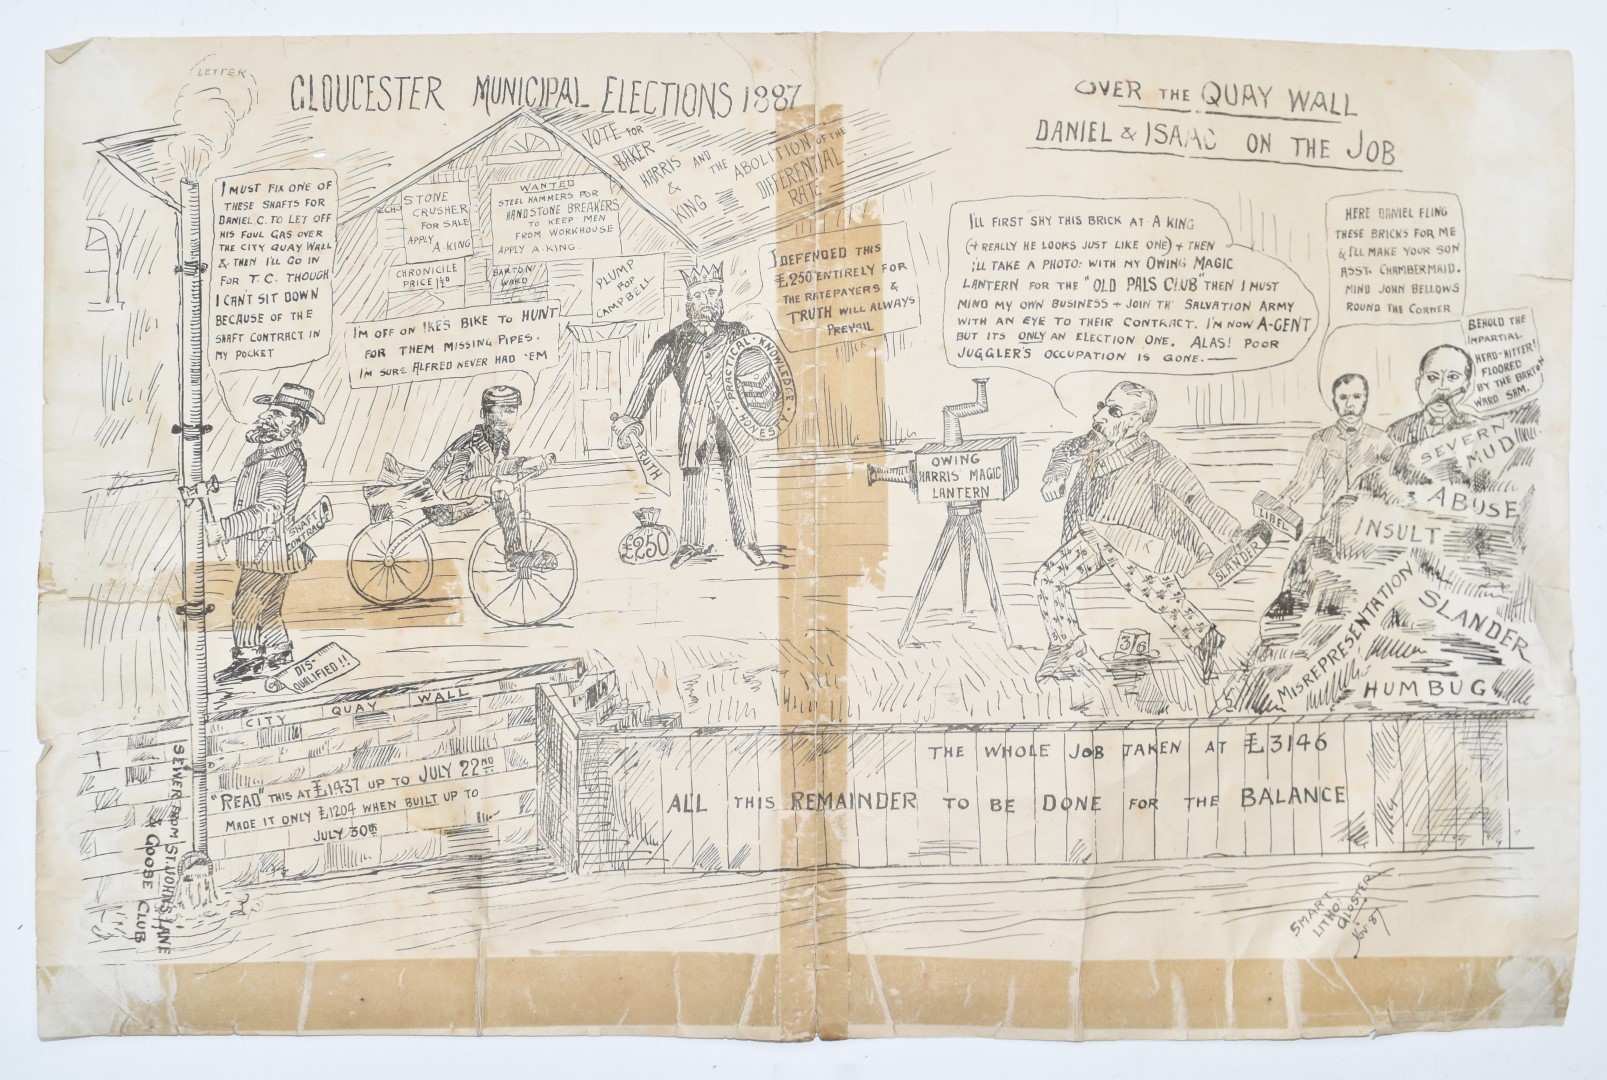 LETTER
GLOUCESTER MUNICIPAL ELECTIONS 1887
OVER THE QUAY WALL
DANIEL & ISAAC ON THE JOB
I MUST FIX ONE OF
THESE SHAFTS FOR
DANIEL C. TO LET OFF
HIS FOUL GAS OVER
THE CITY QUAY WALL
& THEN I'LL GO IN
FOR T.C. THOUGH
I CAN'T SIT DOWN
BECAUSE OF THE
SHAFT CONTRACT IN
MY POCKET
STONE
CRUSHER
FOR SALE
APPLY
A. KING
WANTED
STEEL HAMMERS FOR
HANDSTONE BREAKERS
TO KEEP MEN
FROM WORKHOUSE
APPLY A. KING
CHRONICILE
PRICE 1½D
BARTON
WARD
PLUMP
FOR
CAMPBELL
VOTE FOR
BAKER
HARRIS
&
KING
AND THE
ABOLITION OF THE
DIFFERENTIAL
RATE
I'M OFF ON IKE'S BIKE TO HUNT
FOR THEM MISSING PIPES.
I'M SURE ALFRED NEVER HAD 'EM
I DEFENDED THIS
£250 ENTIRELY FOR
THE RATEPAYERS &
TRUTH WILL ALWAYS
PREVAIL
PRACTICAL · KNOWLEDGE · HONESTY
TRUTH
£250
I'LL FIRST SHY THIS BRICK AT A KING
(+ REALLY HE LOOKS JUST LIKE ONE) + THEN
I'LL TAKE A PHOTO: WITH MY OWING MAGIC
LANTERN FOR THE "OLD PALS CLUB" THEN I MUST
MIND MY OWN BUSINESS + JOIN TH' SALVATION ARMY
WITH AN EYE TO THEIR CONTRACT. I'M NOW A-GENT
BUT ITS ONLY AN ELECTION ONE. ALAS! POOR
JUGGLER'S OCCUPATION IS GONE.
HERE DANIEL FLING
THESE BRICKS FOR ME
& I'LL MAKE YOUR SON
ASST. CHAMBERMAID.
MIND JOHN BELLOWS
ROUND THE CORNER
BEHOLD THE
IMPARTIAL
HERD-HITTER!
FLOORED
BY THE BARTON
WARD SAM.
OWING
HARRIS' MAGIC
LANTERN
LIBEL
SLANDER
SHAFT
CONTRACT
DIS-
QUALIFIED!!
3/6
SEVERN
MUD
ABUSE
INSULT
MISREPRESENTATION
SLANDER
HUMBUG
CITY QUAY WALL
"READ" THIS AT £1437 UP TO JULY 22ND
MADE IT ONLY £1204 WHEN BUILT UP TO
JULY 30TH
THE WHOLE JOB TAKEN AT £3146
ALL THIS REMAINDER TO BE DONE FOR THE BALANCE
SEWER FROM ST. JOHN'S LANE
& GOOSE CLUB
SMART
LITHO.
GLOSTER
Nov. 87